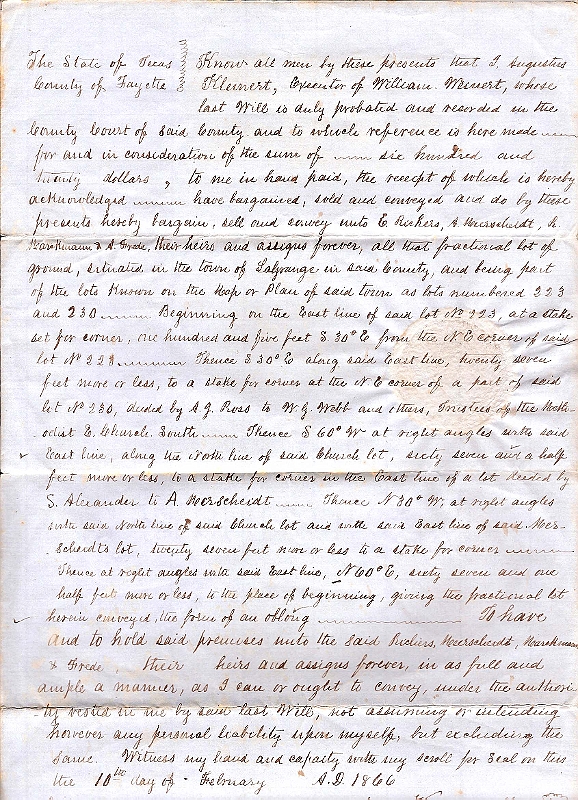 The State of Texas
County of Fayette
Know all men by these presents that I, Augustus
Kleinert, Executor of William Weinert, whose
last Will is duly probated and recorded in the
County Court of said County and to which reference is here made
for and in consideration of the sum of six hundred and
twenty dollars, to me in hand paid, the receipt of which is hereby
acknowledged have bargained, sold and conveyed and do by these
presents hereby bargain, sell and convey unto E. Rickers, A. Heerscheidt, L.
& A. Frede, their heirs and assigns forever, all that fractional lot of
ground, situated in the town of LaGrange in said County, and being part
of the lots known on the Map or Plan of said town as lots numbered 223
and 230 Beginning on the East line of said lot No 223, at a stake
set for corner, one hundred and five feet S. 30° E. from the N. E corner of said
lot No 223 Thence S 30° E along said East line, twenty seven
feet more or less, to a stake for corner at the N E corner of a part of said
lot No 230, deeded by A. J. Ross to W. G. Webb and others, Trustees of the Meth-
odist E. Church South Thence S 60° W at right angles with said
East line, along the North line of said Church lot, sixty seven and a half
feet more or less, to a stake for corner in the East line of a lot deeded by
S. Alexander to A. Heerscheidt Thence N 30° W. at right angles
with said North line of said Church lot and with said East line of said Heer-
scheidts lot, twenty seven feet more or less to a stake for corner
Thence at right angles with said East line, N 60° E, sixty seven and one
half feet more or less, to the place of beginning, giving the fractional lot
herein conveyed, the form of an oblong To have
and to hold said premises unto the said Rickers, Heerscheidt,
& Frede, their heirs and assigns forever, in as full and
ample a manner, as I can or ought to convey, under the authori-
ty vested in me by said last Will, not assuming or intending
however any personal liability upon myself, but excluding the
same. Witness my hand and capacity with my scroll for seal on this
the 10th day of February A.D. 1866